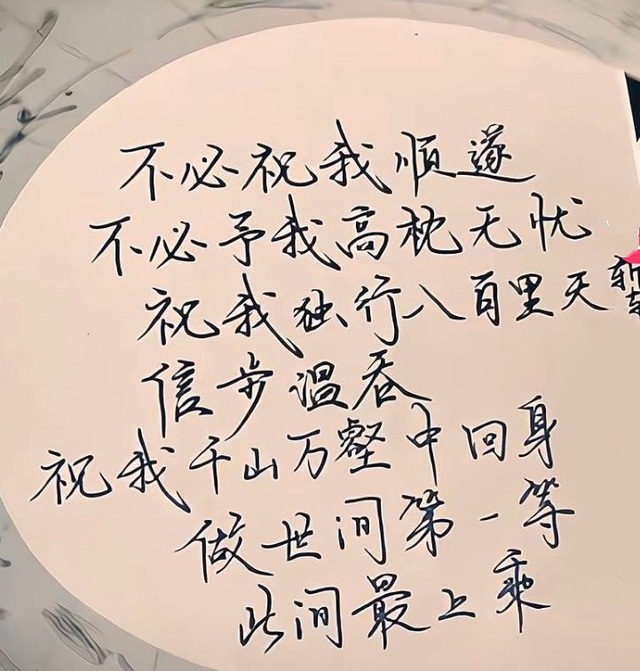 不必祝我顺遂
不必予我高枕无忧
祝我独行八百里天
信步温吞
祝我千山万壑中回身
做世间第一等
此间最上乘